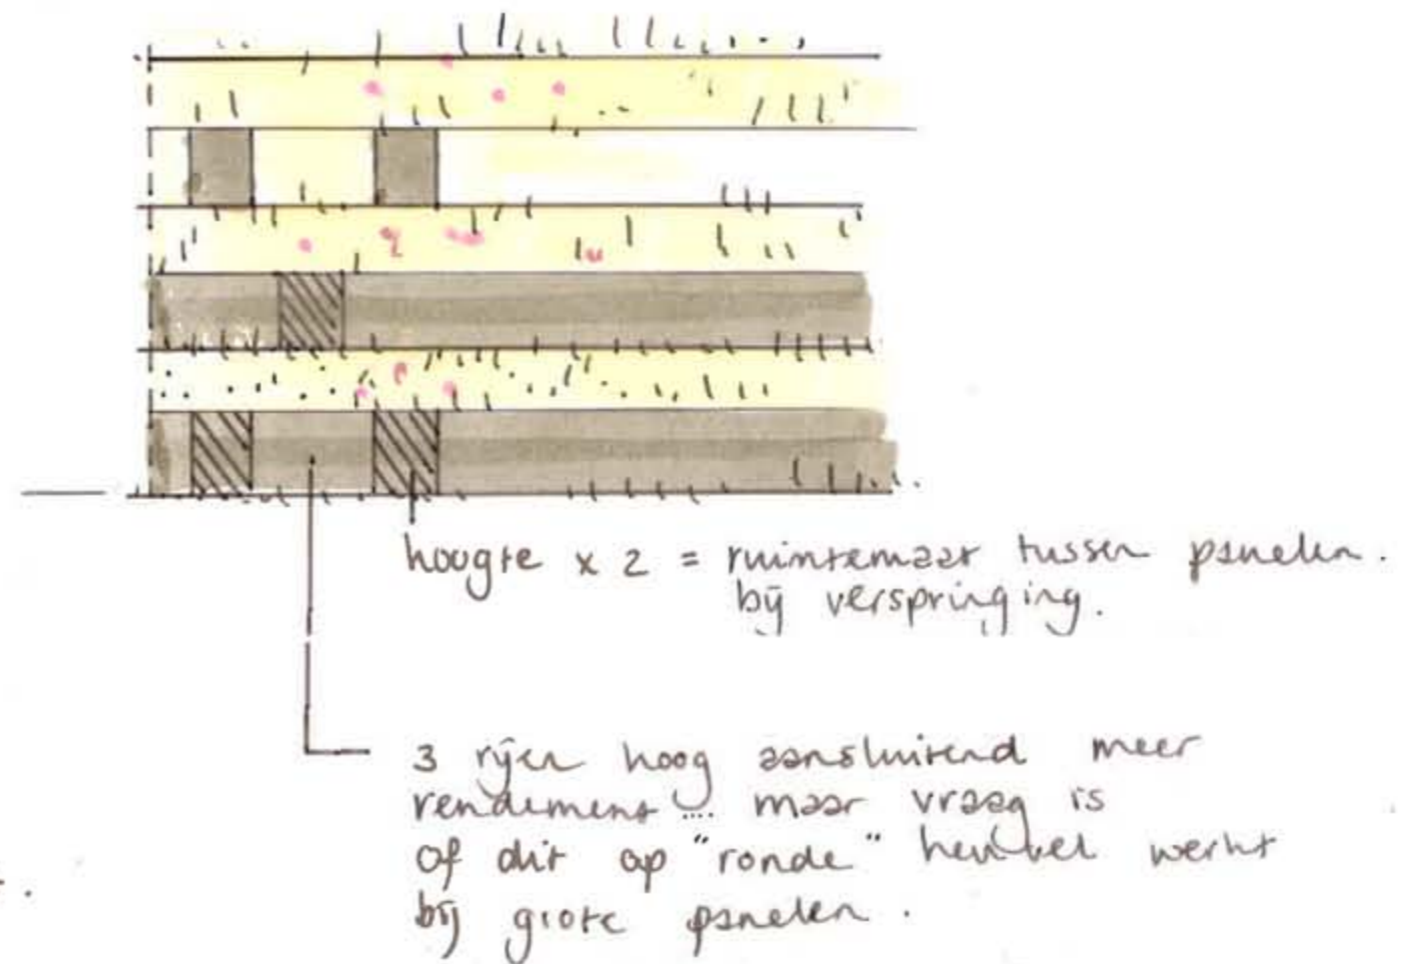 hoogte x 2 = ruimtemaat tussen panelen.
bij verspringing.
3 rijen hoog aansluitend meer
rendement... maar vraag is
of dit op "ronde" heuvel werkt
bij grote panelen.